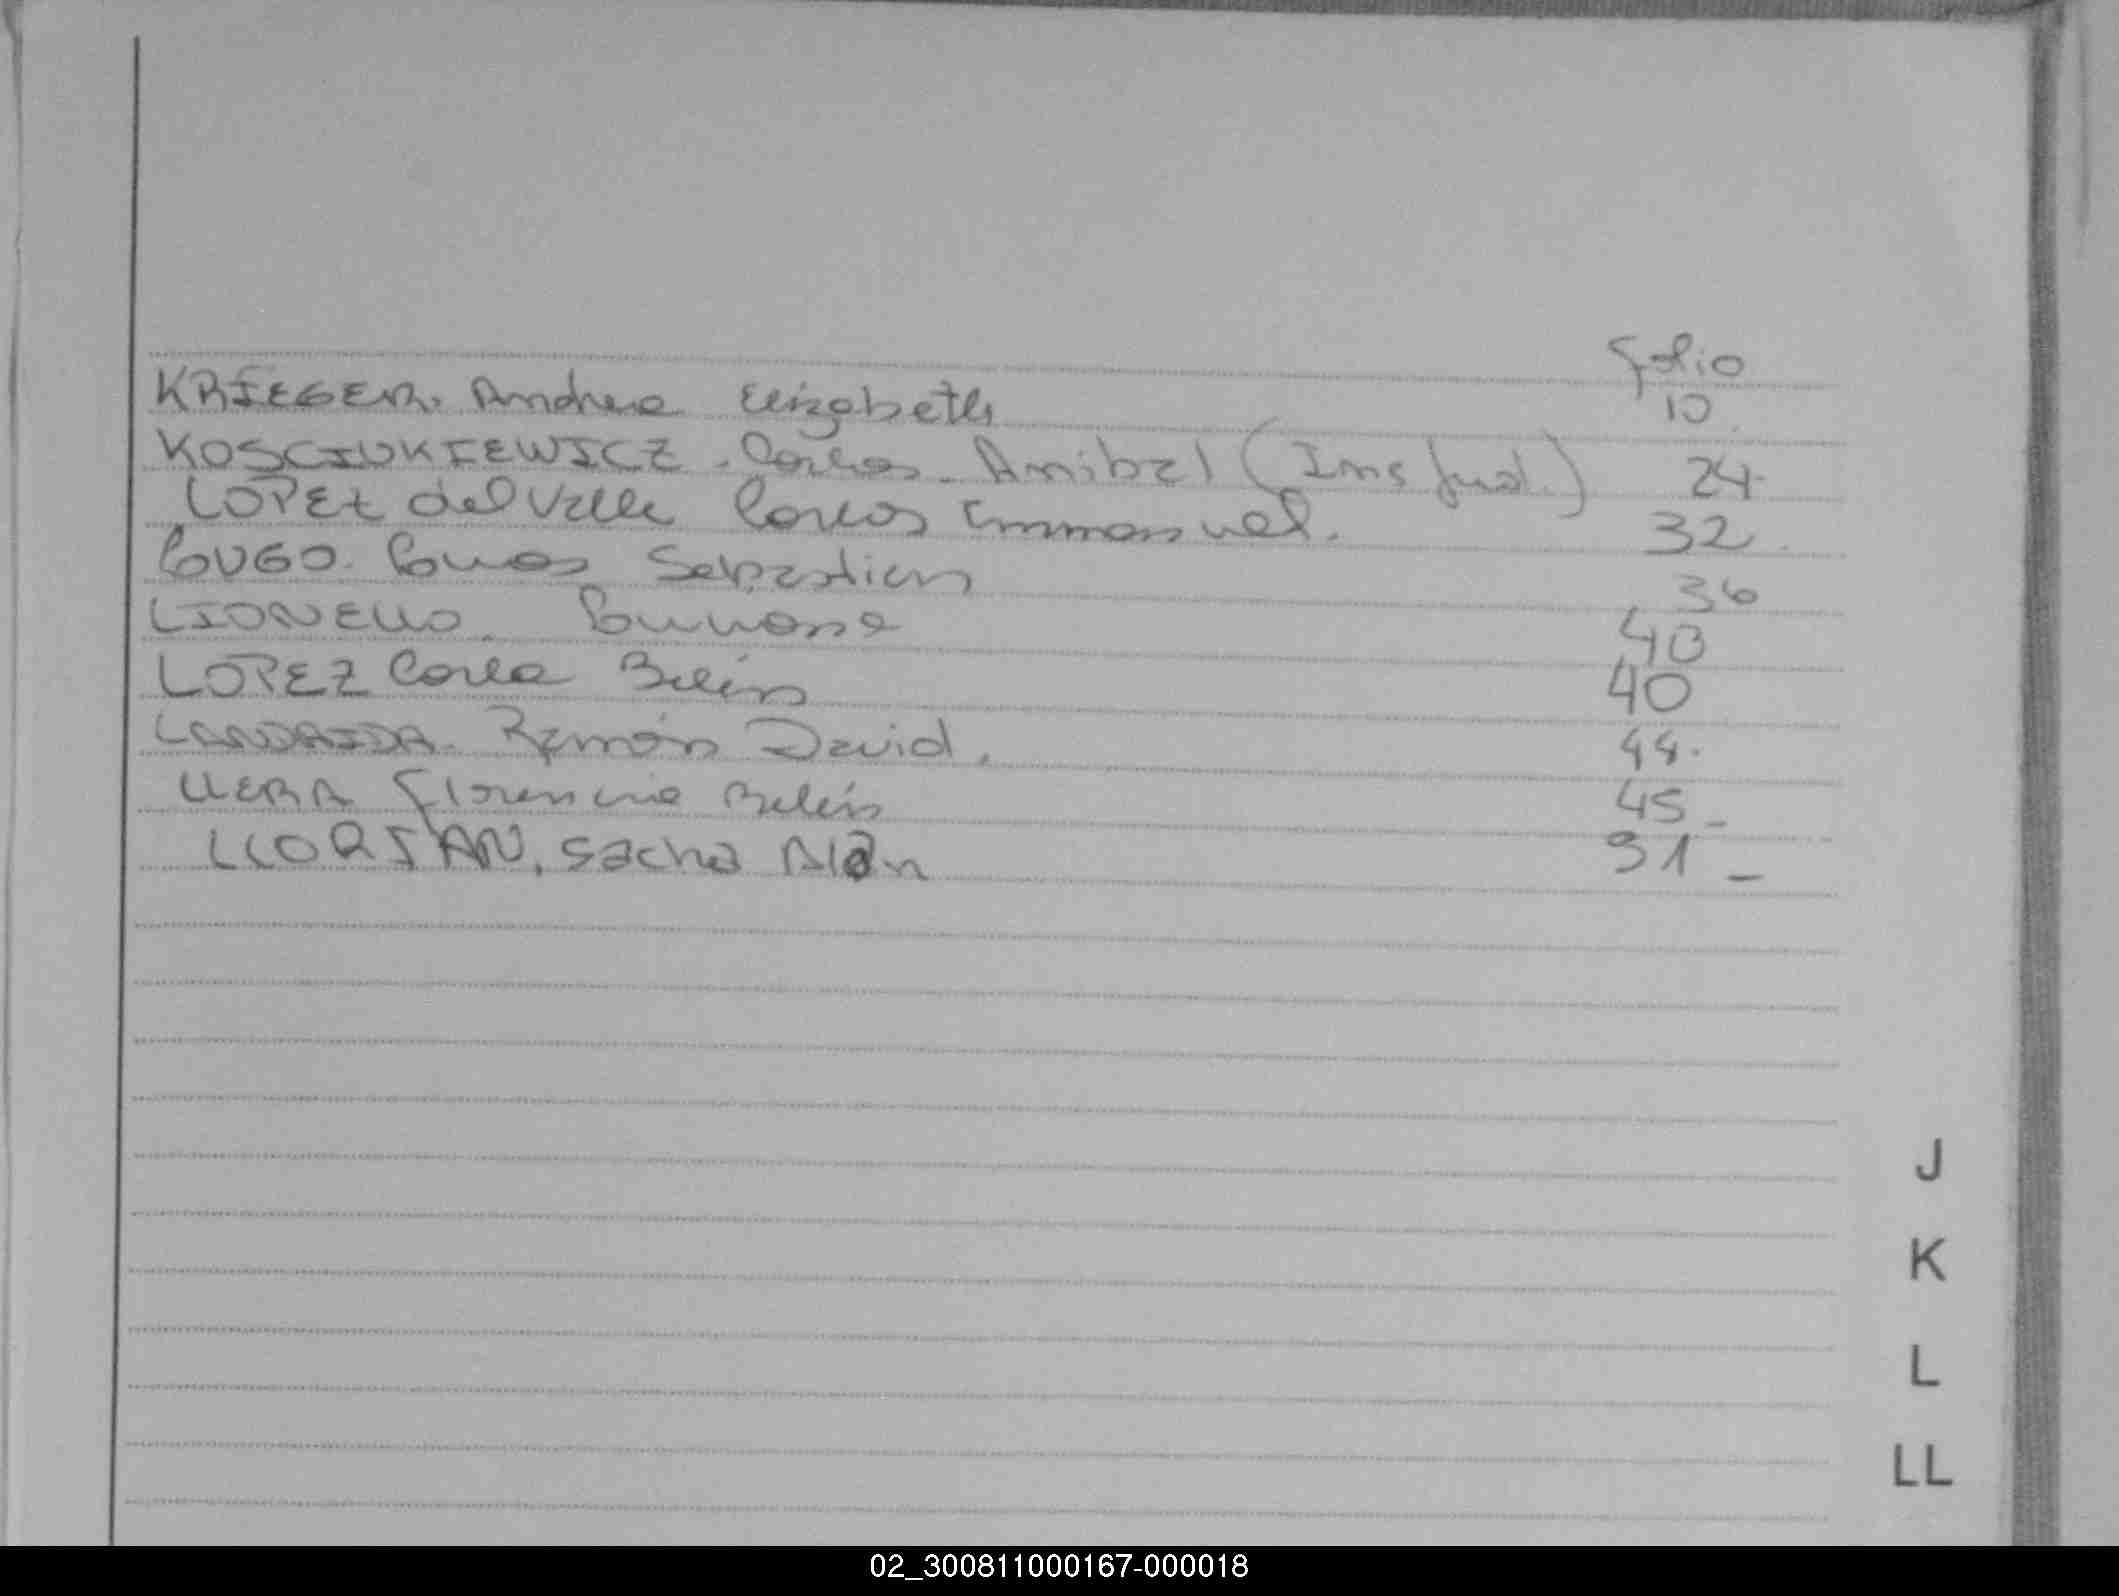 folio
KRIEGER. Andrea Elizabeth 10.
KOSCIUKIEWICZ. Carlos. Anibal (Ins Jud.) 24.
LOPEZ del Valle Carlos Emmanuel. 32.
LUGO. Lucas Sebastian 36
LIONELLO. 40
LOPEZ Carla Belén 40
Ramón David. 44.
LLERA Florencia Belén 45_
Sacha Alan 51_
J
K
L
LL
02_300811000167-000018